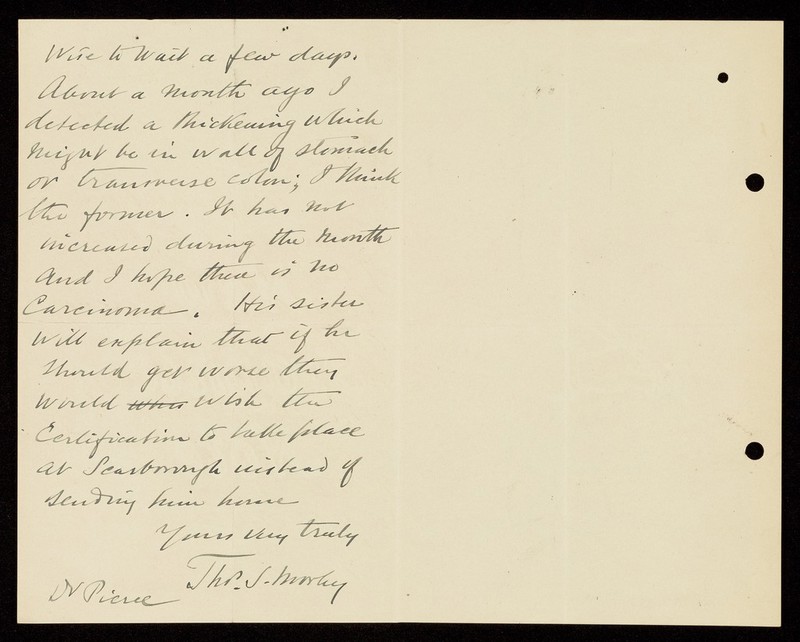 Wise to Wait a few days.
About a month ago I
detected a thickening which
might be in wall of stomach
or transverse colon; I think
the former. It has not
increased during the month
and I hope there is no
Carcinoma. His sister
will explain that if he
should get worse they
would wish the
Certification to take place
at Scarborough instead of
sending him home
Yours very truly
Thos. S. Morley
Dr Pierce